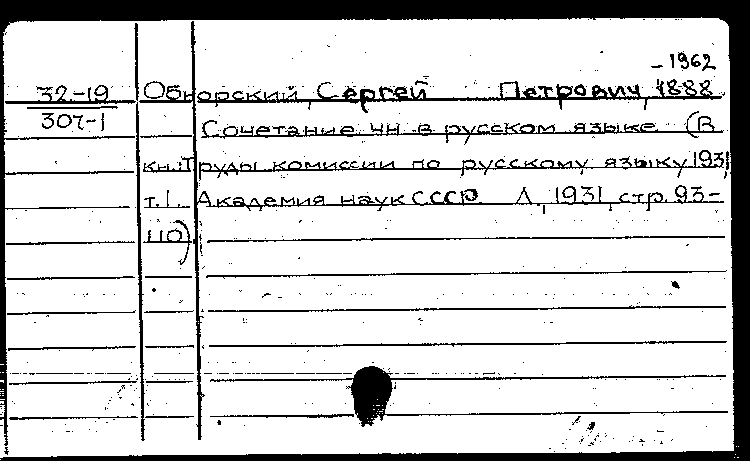 – 1962
32-19 Обнорский, Сергей Петрович, 1888
307-1 Сочетание чн в русском языке (В
кн.: Труды комиссии по русскому языку 1931,
т. 1. Академия наук СССР Л., 1931, стр. 93-
110)